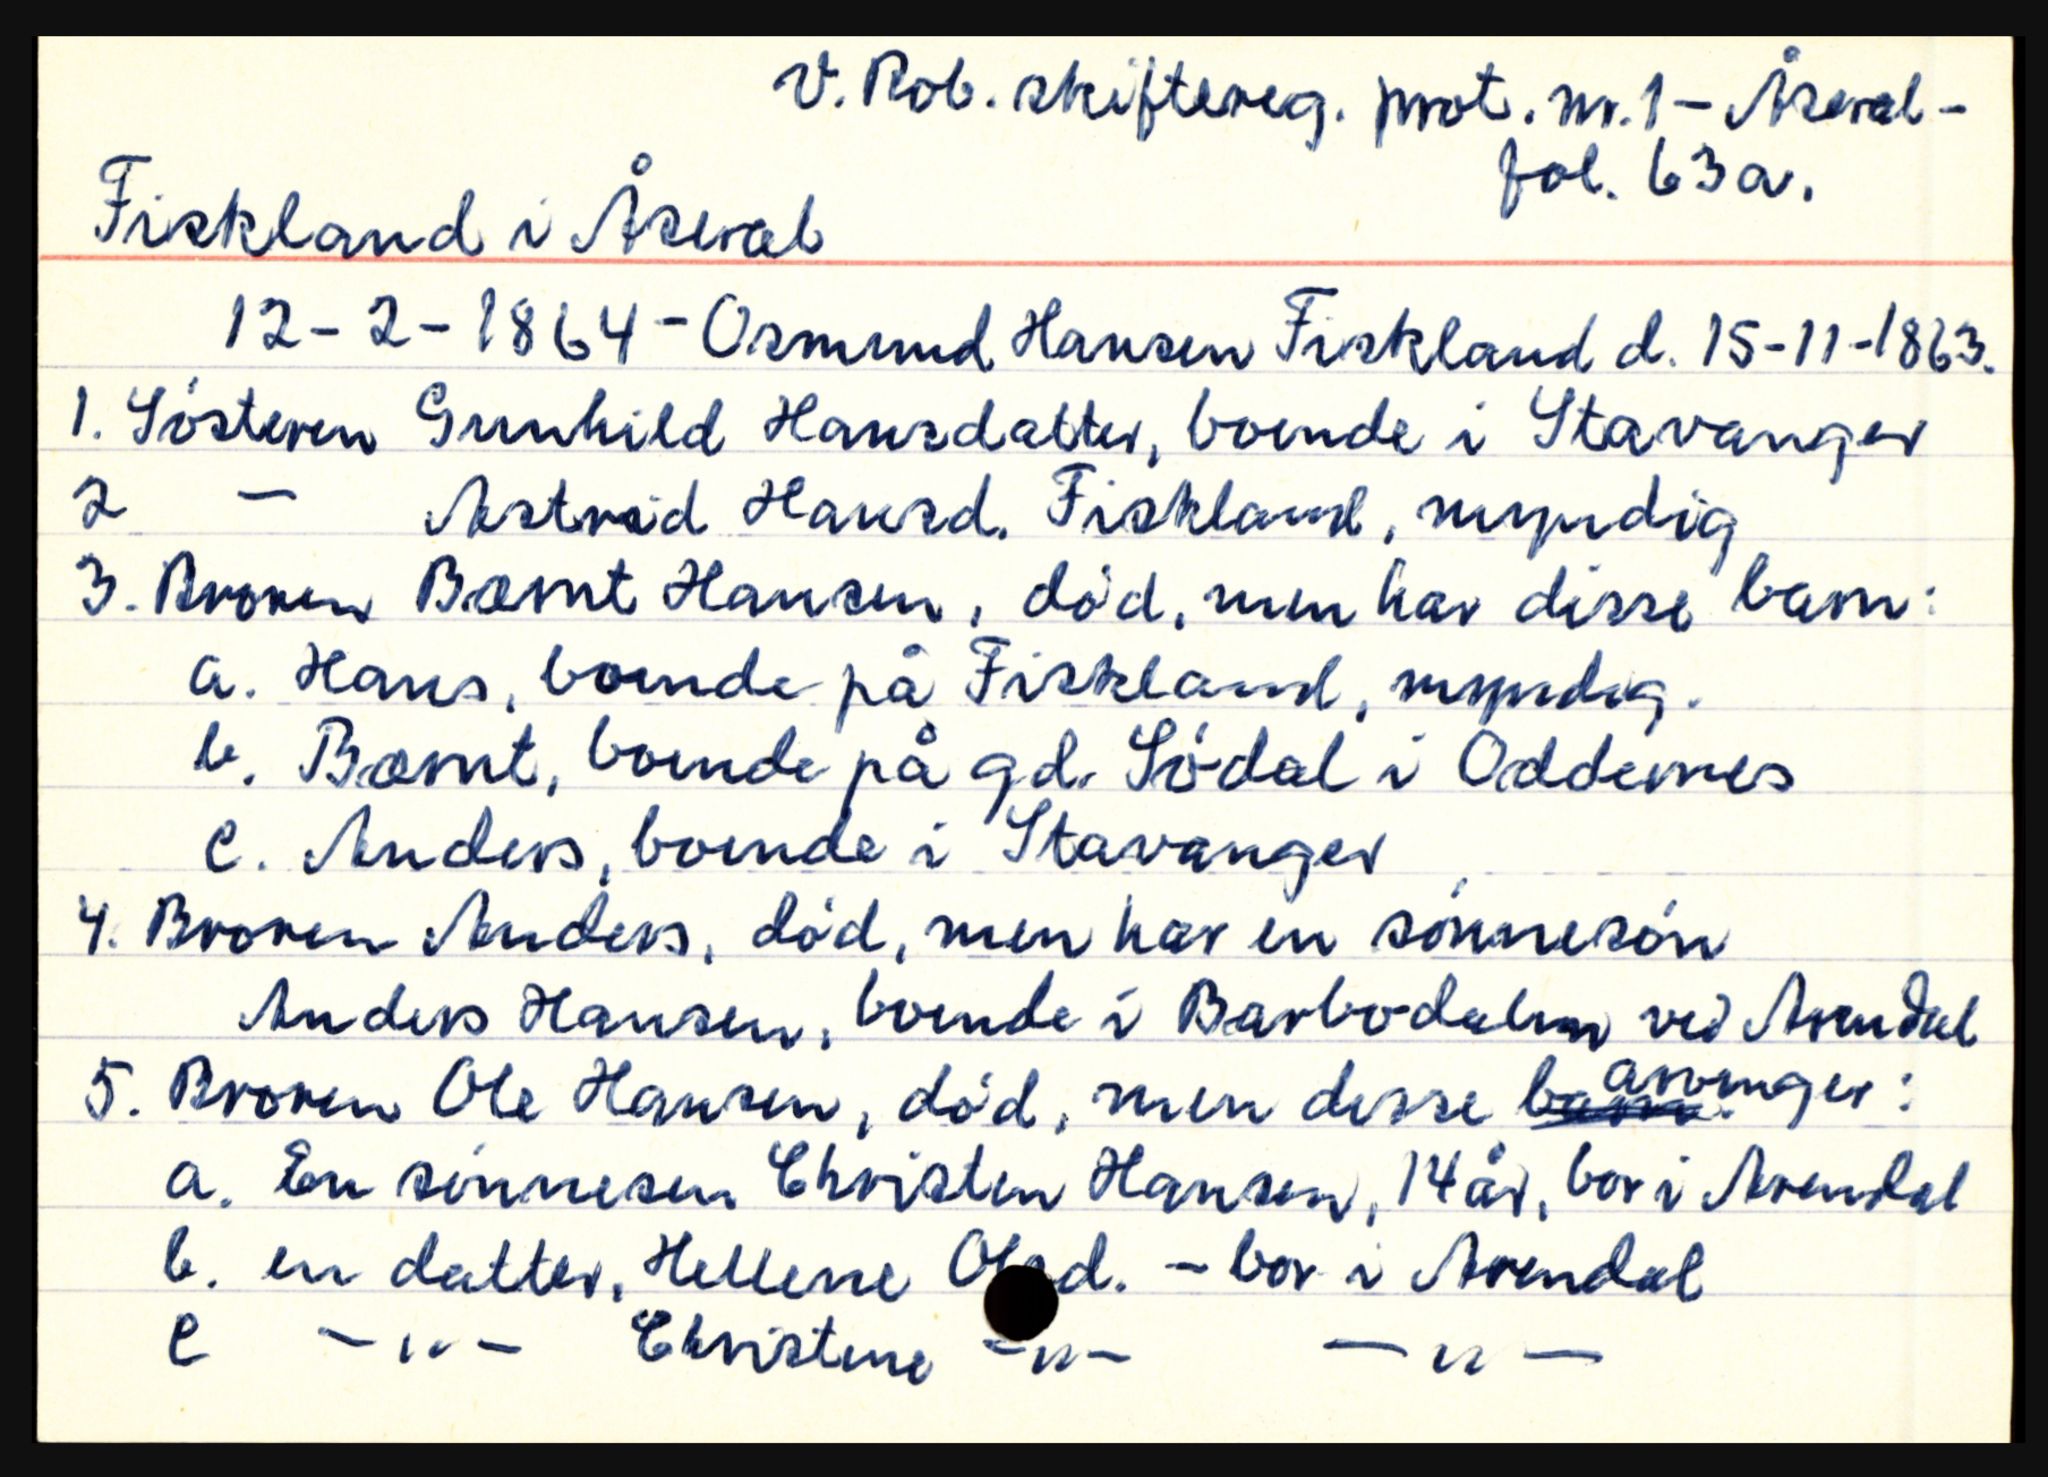 V. Rob. skiftereg. prot. nr. 1 - Åseral -
fol. 63a.
Fiskland i Åseral
12-2-1864 - Osmund Hansen Fiskland d. 15-11-1863.
1. Søsteren Gunhild Hansdatter, boende i Stavanger
2 — Astrid Hansd. Fiskland, myndig
3. Broren Bærnt Hansen, død, men har disse barn:
a. Hans, boende på Fiskland, myndig.
b. Bærnt, boende på gd. Sødal i Oddernes
c. Anders, boende i Stavanger
4. Broren Anders, død, men har en sønnesøn
Anders Hansen, boende i Barbodalen ved Arendal
5. Broren Ole Hansen, død, men disse barn. arvinger:
a. En sønnesøn Christen Hansen, 14 år, bor i Arendal
b. en datter, Hellene Olsd. - bor i Arendal
c -"- Christine -"- -"-